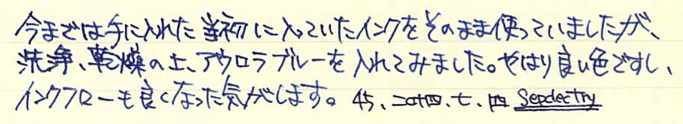 今までは手に入れた当初に入っていたインクをそのまま使っていましたが、
洗浄、乾燥の上、アウロラブルーを入れてみました。やはり良い色ですし、
インクフローも良くなった気がします。 45、二十四、七、四